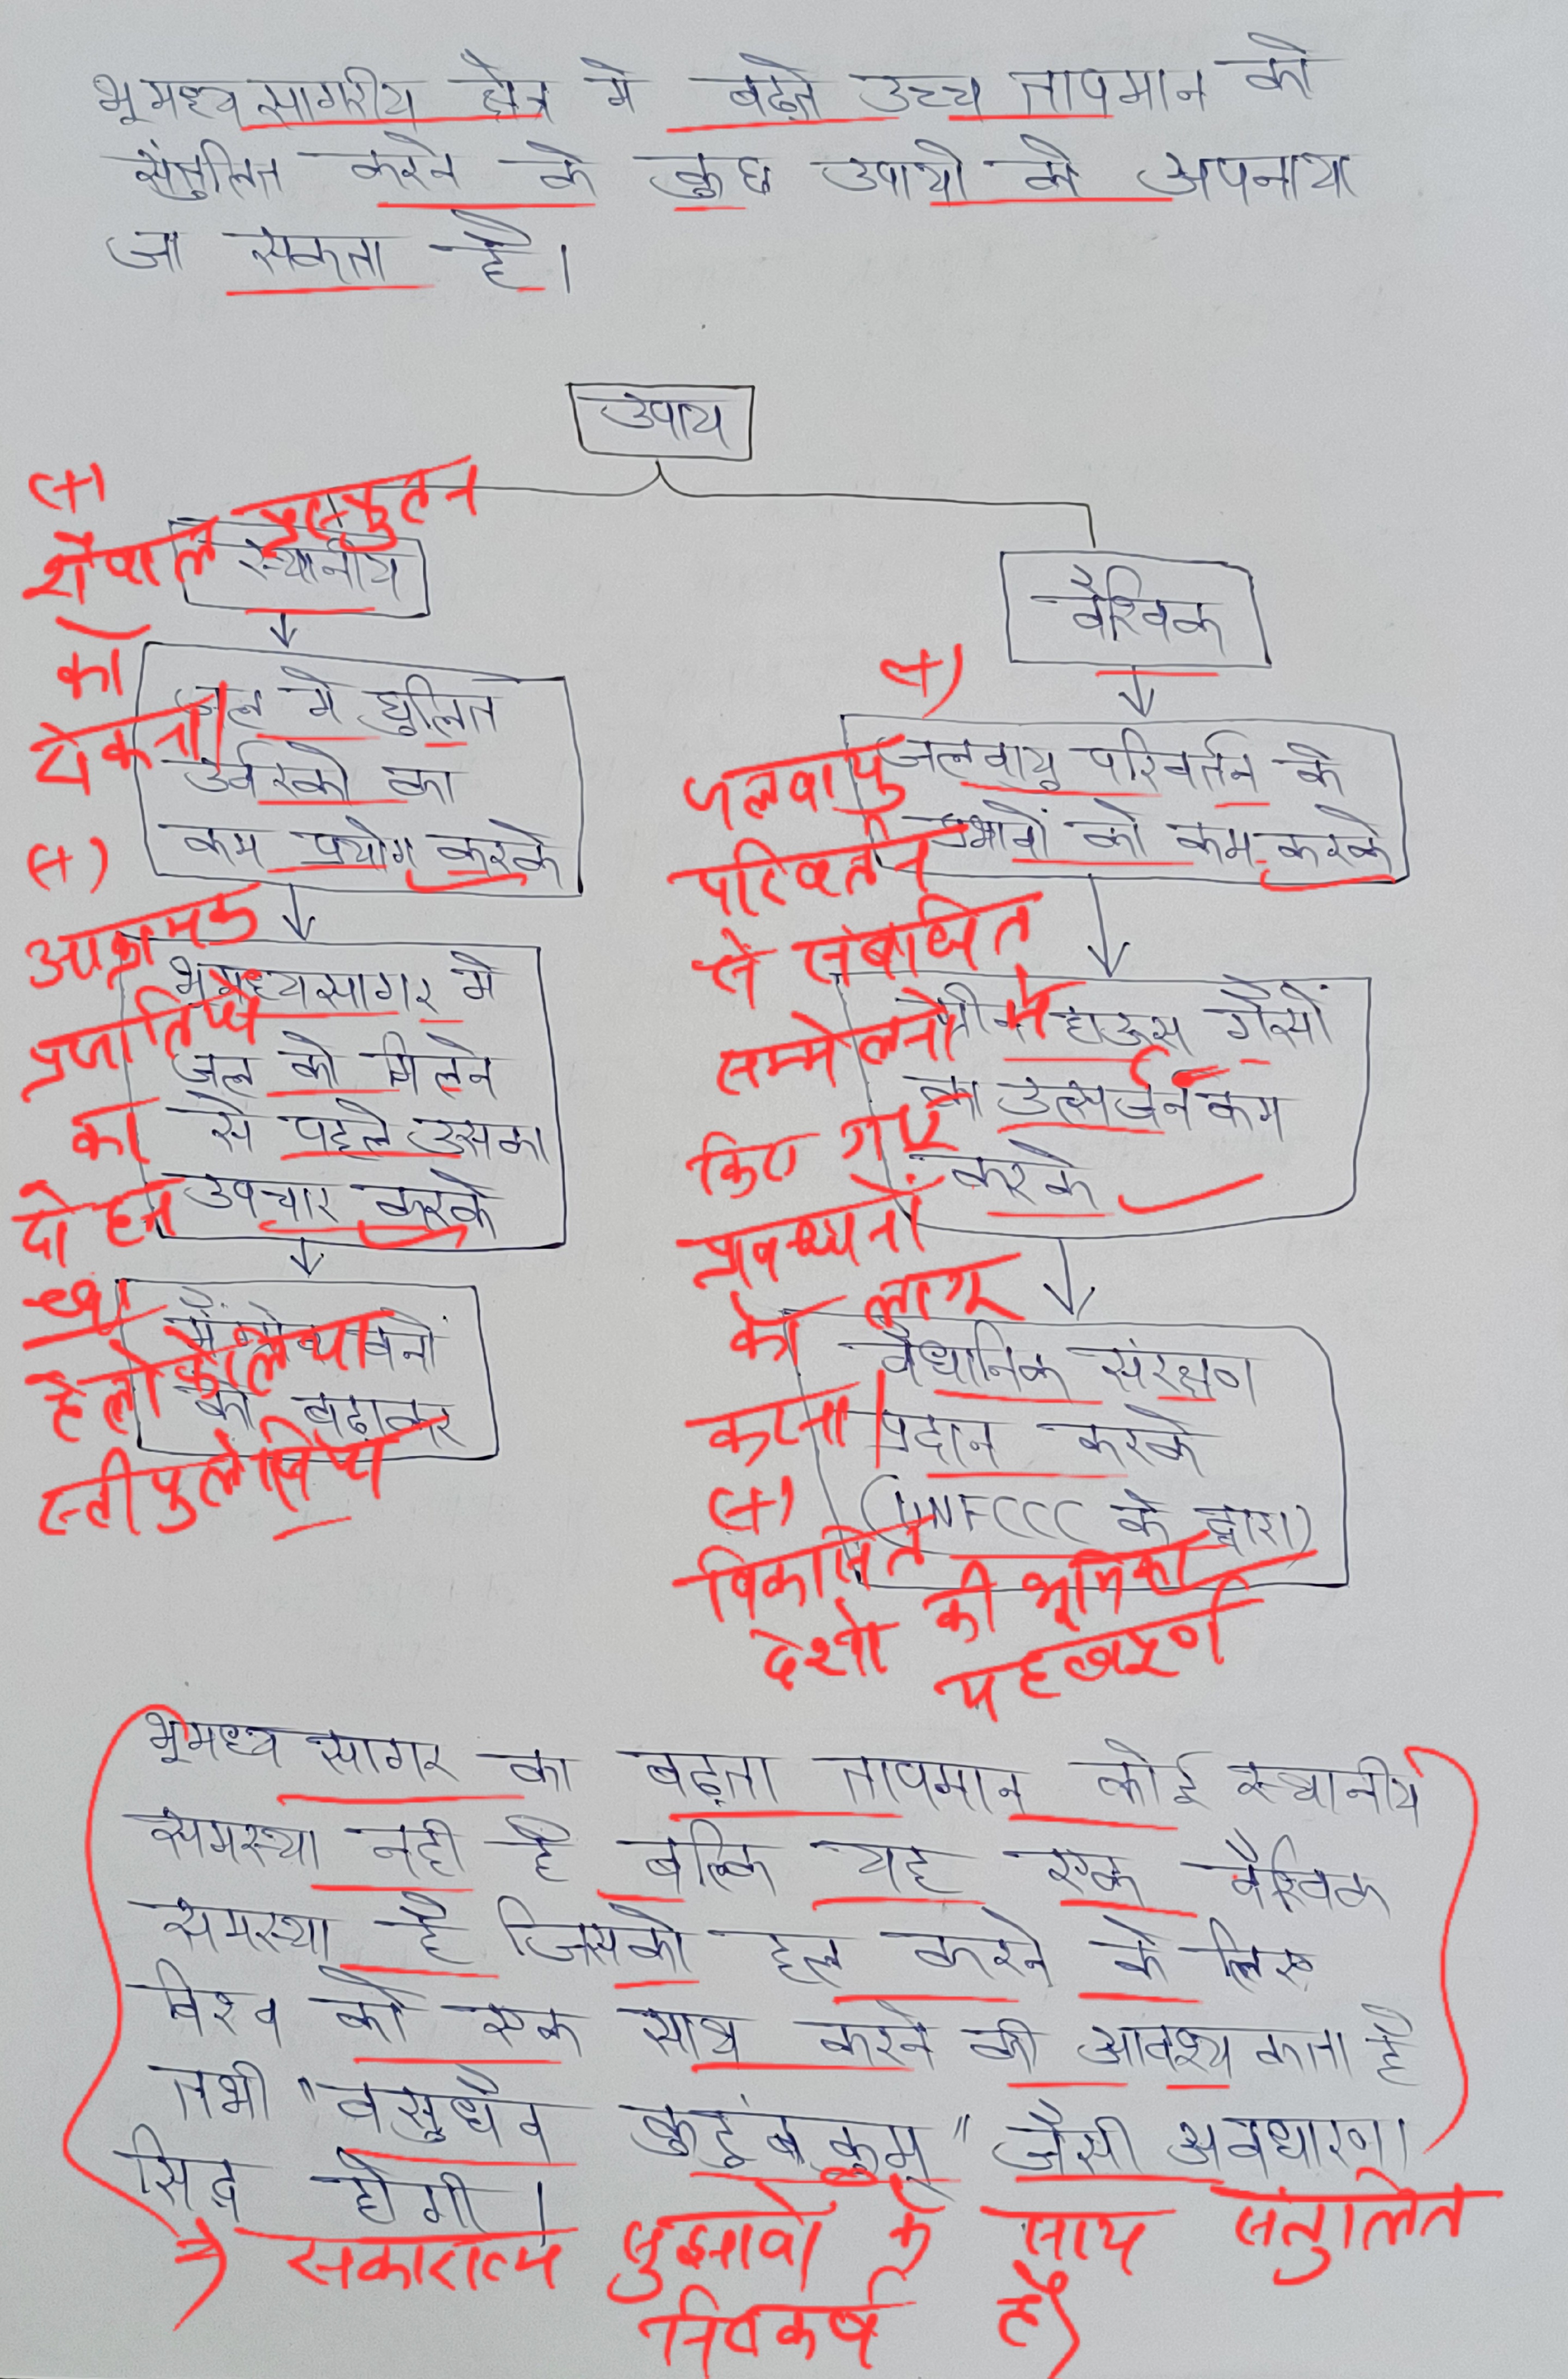 भूमध्यसागरीय क्षेत्र में बढ़ते उच्च तापमान को
संतुलित करने के कुछ उपायों को अपनाया
जा सकता है।
उपाय
स्थानीय
जल में घुलित
उर्वरकों का
कम प्रयोग करके
भूमध्यसागर में
जल को मिलने
से पहले उसका
उपचार करके
मैंग्रोव वनों
को बढ़ाकर
(+)
शैवाल प्रस्फुटन
को
रोकना।
(+)
आक्रामक
प्रजातियों
का
दोहन
हेलोफिलिया
स्टीपुलेसिया
वैश्विक
जलवायु परिवर्तन के
प्रभावों को कम करके
ग्रीन हाऊस गैसों
का उत्सर्जन कम
करके
वैधानिक संरक्षण
प्रदान करके
(UNFCCC के द्वारा)
(+)
जलवायु
परिवर्तन
से संबंधित
सम्मेलनों में
किए गए
प्रावधानों
को लागू
करना।
(+)
विकसित
देशों की भूमिका
महत्वपूर्ण
भूमध्य सागर का बढ़ता तापमान कोई स्थानीय
समस्या नहीं है बल्कि यह एक वैश्विक
समस्या है जिसको हल करने के लिए
विश्व को एक साथ करने की आवश्यकता है
तभी "वसुधैव कुटुंबकुम्" जैसी अवधारणा
सिद्ध होगी।
→ सकारात्म सुझावों के साथ संतुलित
निष्कर्ष है)